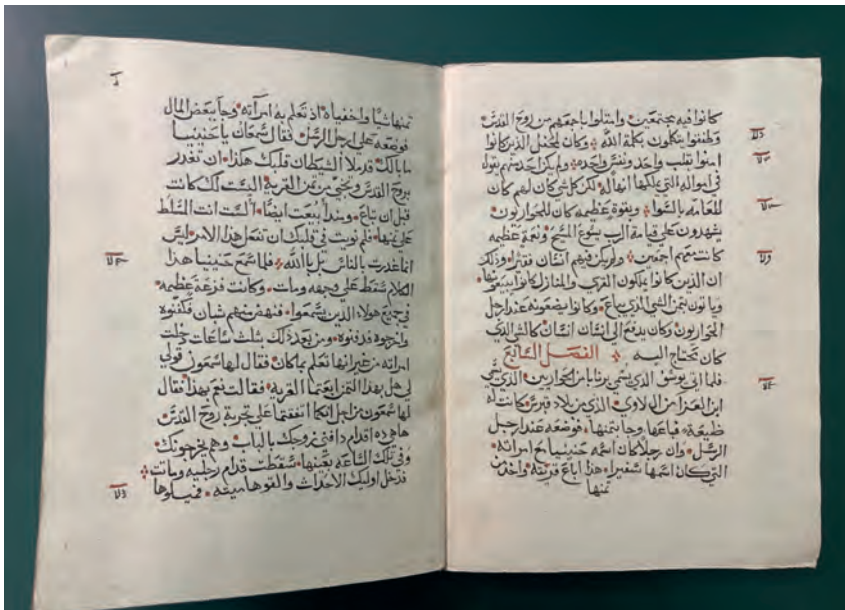 كانوا فيه مجتمعين۰ وامتلوا باجمعهم من روح القدس۰
وطفقوا يتكلون بكلمة الله ۰ وكان لمحفل الذين كانوا
امنوا بقلب واحد ونفس واحده۰ ولم يكن احد منهم يقول
في امواله التي يملكها انها له۰ لكن كلما شي كان لهم كان
للعامه بالسوا۰ وبقوة عظيمه كان للحواريون۰
يشهدون علي قيامة الرب يسوع المسيح ونعمة عظيمه
كانت معهم اجمعين۰ ولم يكن فيهم انسان فقير۰ وذلك
ان الذين كانوا يملكون القري والمنازل كانوا يبيعونها۰
وياتون بثمن الشي الذي يباع۰ وكانوا يضعونه عند ارجل
الحواريون وكان يدفع الي انسان انسان كالشي الذي
كان تحتاج اليه ۰ الفصل السابع
فلما اتي يوسف الذي سمي برنابا من الحواريين۰ الذي سمي
ابن العزا من ال لاوي۰ الذي من بلاد قبرس۰ كانت له
ظيعة۰ فباعها وجا بثمنها۰ فوضعه عند ارجل
الرسل۰ وان رجلا كان اسمه حنينيا مع امراته۰
التي كان اسمها سفيرا۰ هذا اباع قريته۰ واخذ من
ثمنها
ثمنها شيا واخفياه۰ اذ تعلم به امراته۰ وجا بعض المال
فوضعه علي ارجل الرسل۰ فقال شمعان يا حنينيا
ما بالك۰ قد ملا الشيطان قلبك هكذا۰ ان تغدر
بروح القدس وتخبي من ثمن القرية۰ اليست لك كانت
قبل ان تباع۰ ومنذ أبيعت ايضا۰ ألست انت السلط
علي ثمنها۰ فلم نويت في قلبك ان تفعل هذا الامر۰ ليس
انما غدرت بالناس بل بالله۰ فلما سمع حنينيا هذا
الكلام سقط علي وجهه ومات۰ وكانت فزعة عظيمه۰
في جميع هولاء الذين يسمعوا۰ فنهض منهم شبان فكفنوه
واخرجوه فدفنوه۰ ومن بعد ذلك بثلث ساعات دخلت
امراته من غير انها تعلم بما كان۰ فقال لها شمعون قولي
لي هل بهذا الثمن ابعتما القرية۰ فقالت نعم بهذا۰ فقال
لها شمعون من اجل انكما اتفقتما علي تجربة روح القدس۰
ها هي ده اقدام دافني زوجك بالباب۰ وهم يخرجونك۰
وفي تلك الساعة بعينها۰ سقطت قدام رجليه وماتت۰
فدخل اوليك الاحداث والقوها ميته۰ فحملوها